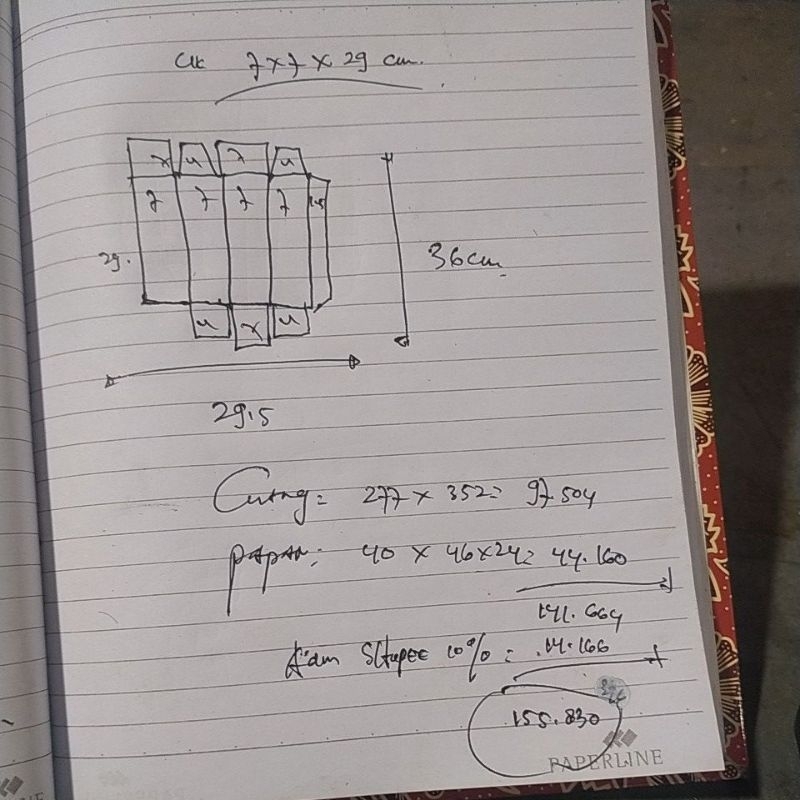 Uk 7 x 7 x 29 cm.
x 4 x 4
7 7 7 7 1.5
29.
36 cm
4 x 4
29.5
Cutng = 277 x 352 = 97.504
papan: 40 x 46 x 24 = 44.160
141.664
10% = 14.166
155.830
PAPERLINE